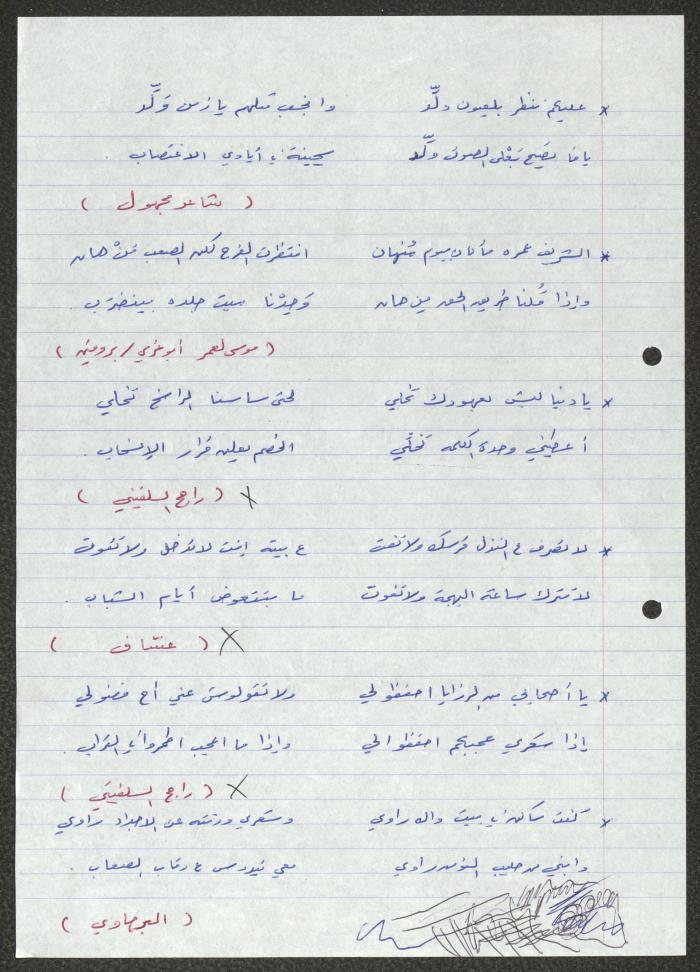 * عليكم ننطر بلعيون دلّو وانجب مثلهم يا زمن ولّو
يافا تصيح بعلى الصوت ولّا سجينة في أيادي الاغتصاب .
( شاعر مجهول )
* الشريف عمره ما بيوم منهان انتظرت الفرج لكن الصعب هان
وإذا قلنا طريق الحق من هان وجدنا ميت جلده بينضرب .
( موسى لعمر أبو غزي / برومين )
* يا دنيا ليش بعهودك تخلي لحتى ساسنا الراسخ تخلي
أعطيني وحدة الكلمه تخلّي الخصم يعلن قرار الإنسحاب .
( راجح السلفيتي ) X
* لا تصرف ع النذل قرشك ولا تفت ع بيته إنت لا تدخل ولا تفوت
لا تترك ساعة البهجة ولا تفوت ما بتتعوض أيام الشباب .
( عنتاف ) X
* يا أصحابي من الرزايا احفظولي ولا تقولوش عني أح فضولي
إذا شعري عجبكم احفظوا لي وإذا ما اعجب اطمروا في التراب .
( راجح السلفيتي ) X
* كنت ساكن في بيت واله راوي وشعري ورثته عن الاجداد راوي
وابني من حليب النوس راوي معي تيدوس ع رقاب الصعاب .
( البرهاوي )